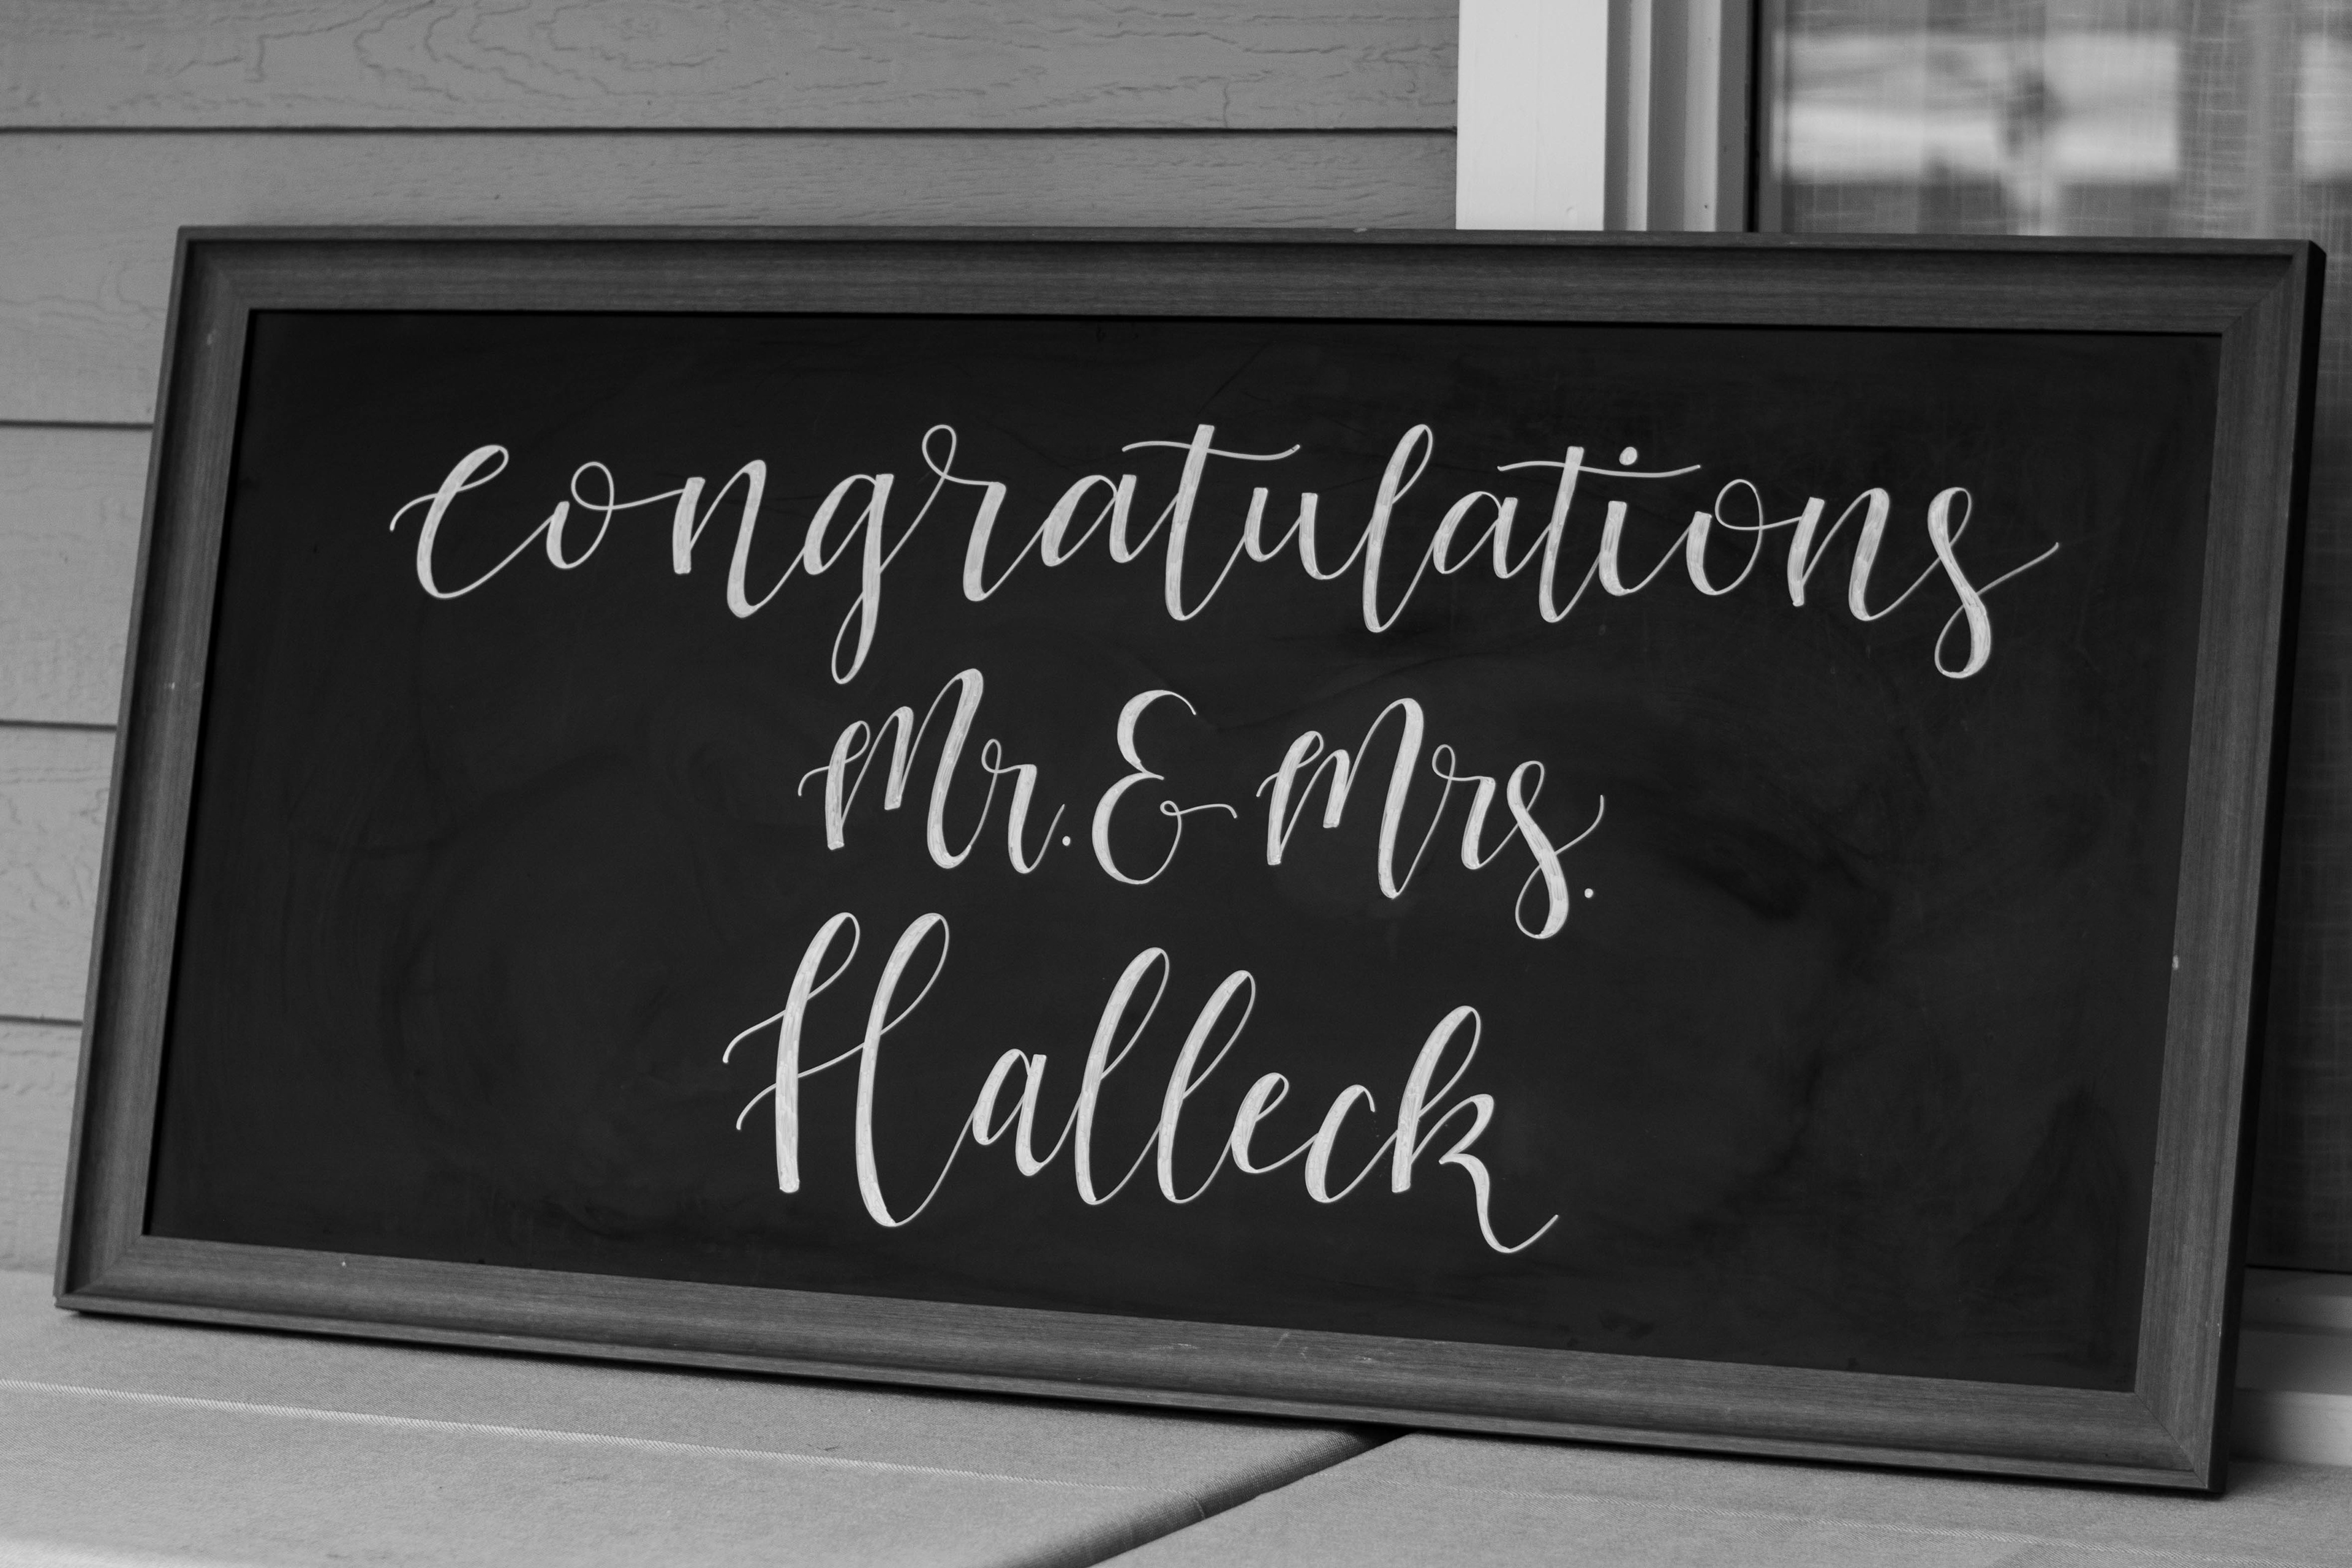 congratulations
Mr. & Mrs.
Halleck